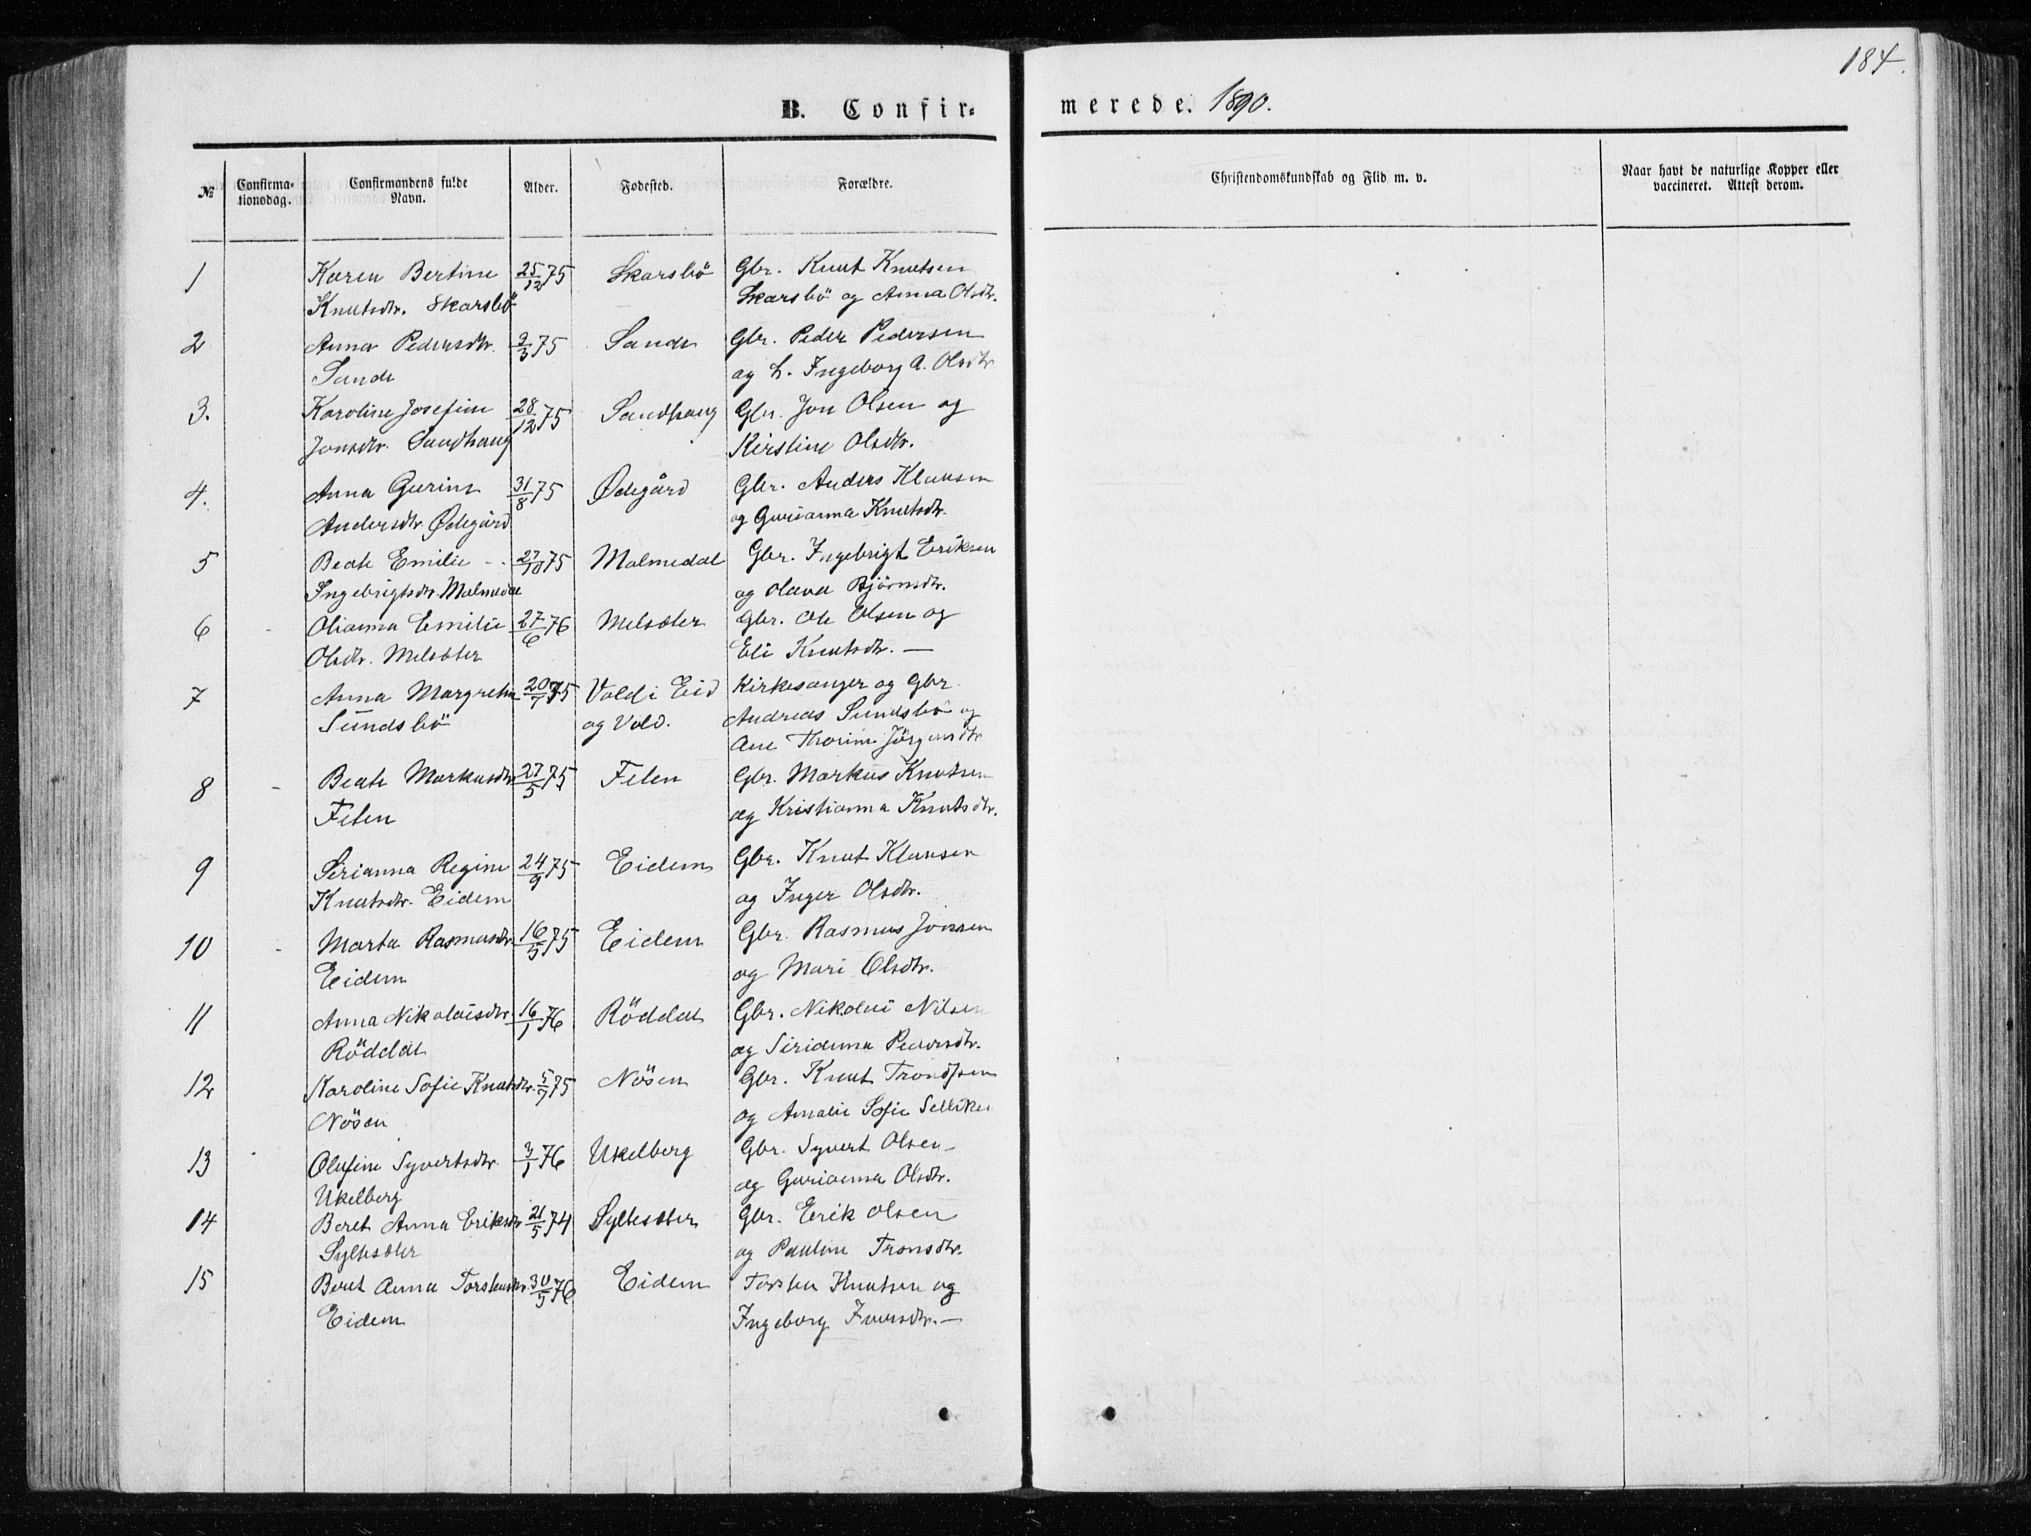 184.
B. Confir-
merede. 1890.
№
Confirma-
tionsdag.
Confirmandens fulde
Navn.
Alder.
Fødested.
Forældre.
Christendomskundskab og Flid m. v.
Naar havt de naturlige Kopper eller
vaccineret. Attest derom.
1 Karen Bertine 25/12 75 Skarsbö Gbr. Knut Knutsen
Knutsdtr. Skarsbö Skarsbö og Anna Olsdtr.
2 Anna Pedersdtr. 2/3 75 Sande Gbr. Peder Pedersen
Sande og h. Ingeborg A. Olsdtr
3. Karoline Josefine 28/12 75 Sandhaug Gbr. Jon Olsen og
Jonsdtr. Sandhaug Kirstine Olsdtr.
4. Anna Gurine 31/8 75 Ødegård Gbr. Anders Klausen
Andersdtr. Ødegård og Gurianna Knutsdtr.
5 Beate Emilie 27/10 75 Malmedal Gbr. Ingebrigt Eriksen
Ingebrigtsdtr. Malmedal og Olava Bjørnsdtr.
6 Olianna Emilie 27/6 76 Melsæter Gbr. Ole Olsen og
Olsdtr. Melsæter Eli Knutsdtr. —
7 Anna Margrethe 20/7 75 Vold i Eid Kirkesanger og Gbr
Sundsbö og Vold. Andreas Sundsbö og
Ane Thorine Jörgensdtr
8 Beate Markusdtr 27/5 75 Felen Gbr. Markus Knutsen
Felen og Kristianna Knutsdtr.
9 Serianna Regine 24/9 75 Eidem Gbr. Knut Klausen
Knutsdtr. Eidem og Inger Olsdtr.
10 Marta Rasmusdtr 16/5 75 Eidem Gbr. Rasmus Jonsen
Eidem og Mari Olsdtr.
11 Anna Nikolaisdtr. 16/1 76 Röddal Gbr. Nikolai Nilsen
Röddal og Serianna Pedersdtr.
12 Karoline Sofie Knutsdtr. 5/9 75 Nösen Gbr. Knut Trondsen
Nösen og Amalie Sofie
13 Olufine Syvertsdtr. 3/1 76 Ukelberg Gbr. Syvert Olsen
Ukelberg og Gurianna Olsdtr.
14 Beret Anna Eriksdtr 21/5 74 Syltesæter Gbr. Erik Olsen
Syltesæter og Pauline Tronsdtr.
15 Beret Anna Torstensdtr 30/5 76 Eidem Torsten Knutsen og
Eidem Ingeborg Iversdtr. —